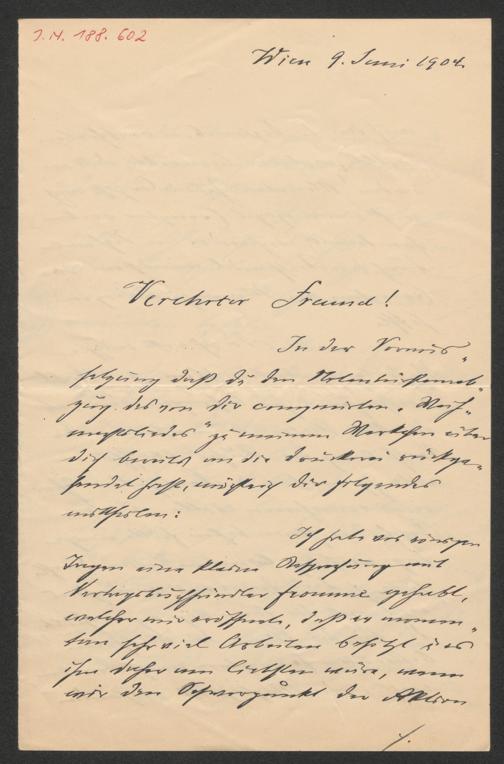 I.N. 188.602
Wien 9. Juni 1904.
Verehrter Freund!
In der Voraus„
setzung daß du den Notenbürstenab„
zug des von dir componirten „Weih„
nachtsliedes" zu meinem Werkchen über
dich bereits an die Druckerei rückge„
sendet hast, möchte ich dir folgendes
mittheilen:
Ich hatte vor einigen
Tagen eine kleine Besprechung mit
Verlagsbuchhändler Fromme gehabt,
welcher mir eröffnete, daß er momen„
tan sehr viel Arbeiten besitzt u es
ihm daher am liebsten wäre, wenn
wir den Schwerpunkt der Aktion
./.